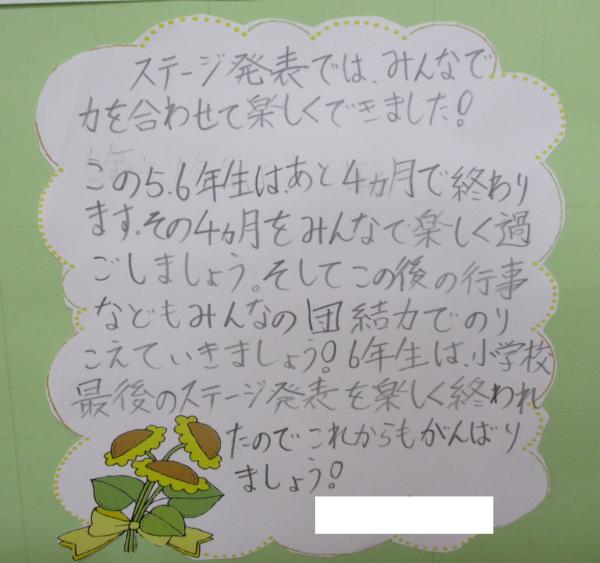 ステージ発表では、みんなで
力を合わせて楽しくできました!
この5.6年生はあと4ヵ月で終わり
ます。その4ヵ月をみんなで楽しく過
ごしましょう。そしてこの後の行事
などもみんなの団結力でのり
こえていきましょう!6年生は、小学校
最後のステージ発表を楽しく終われ
たのでこれからもがんばり
ましょう!